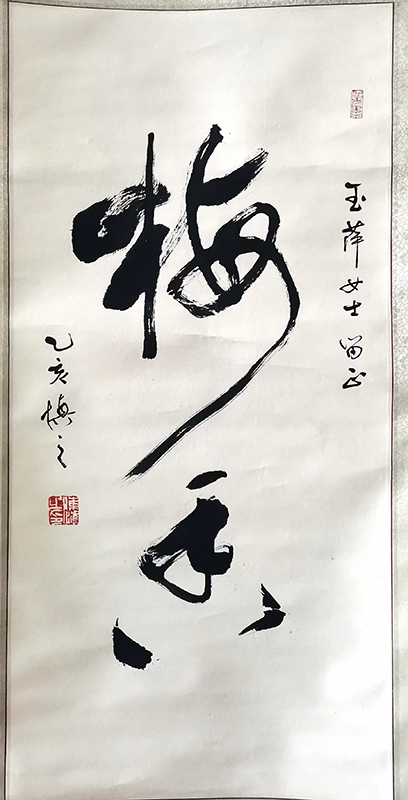 玉萍女士留正
梅香
乙亥慎之